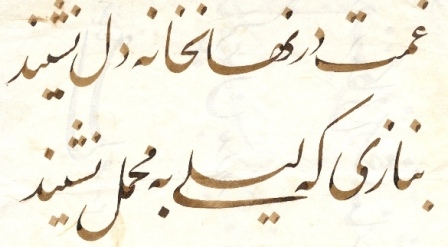 غمت در نهانخانه دل نشیند
بنازی که لیلی به محمل نشیند